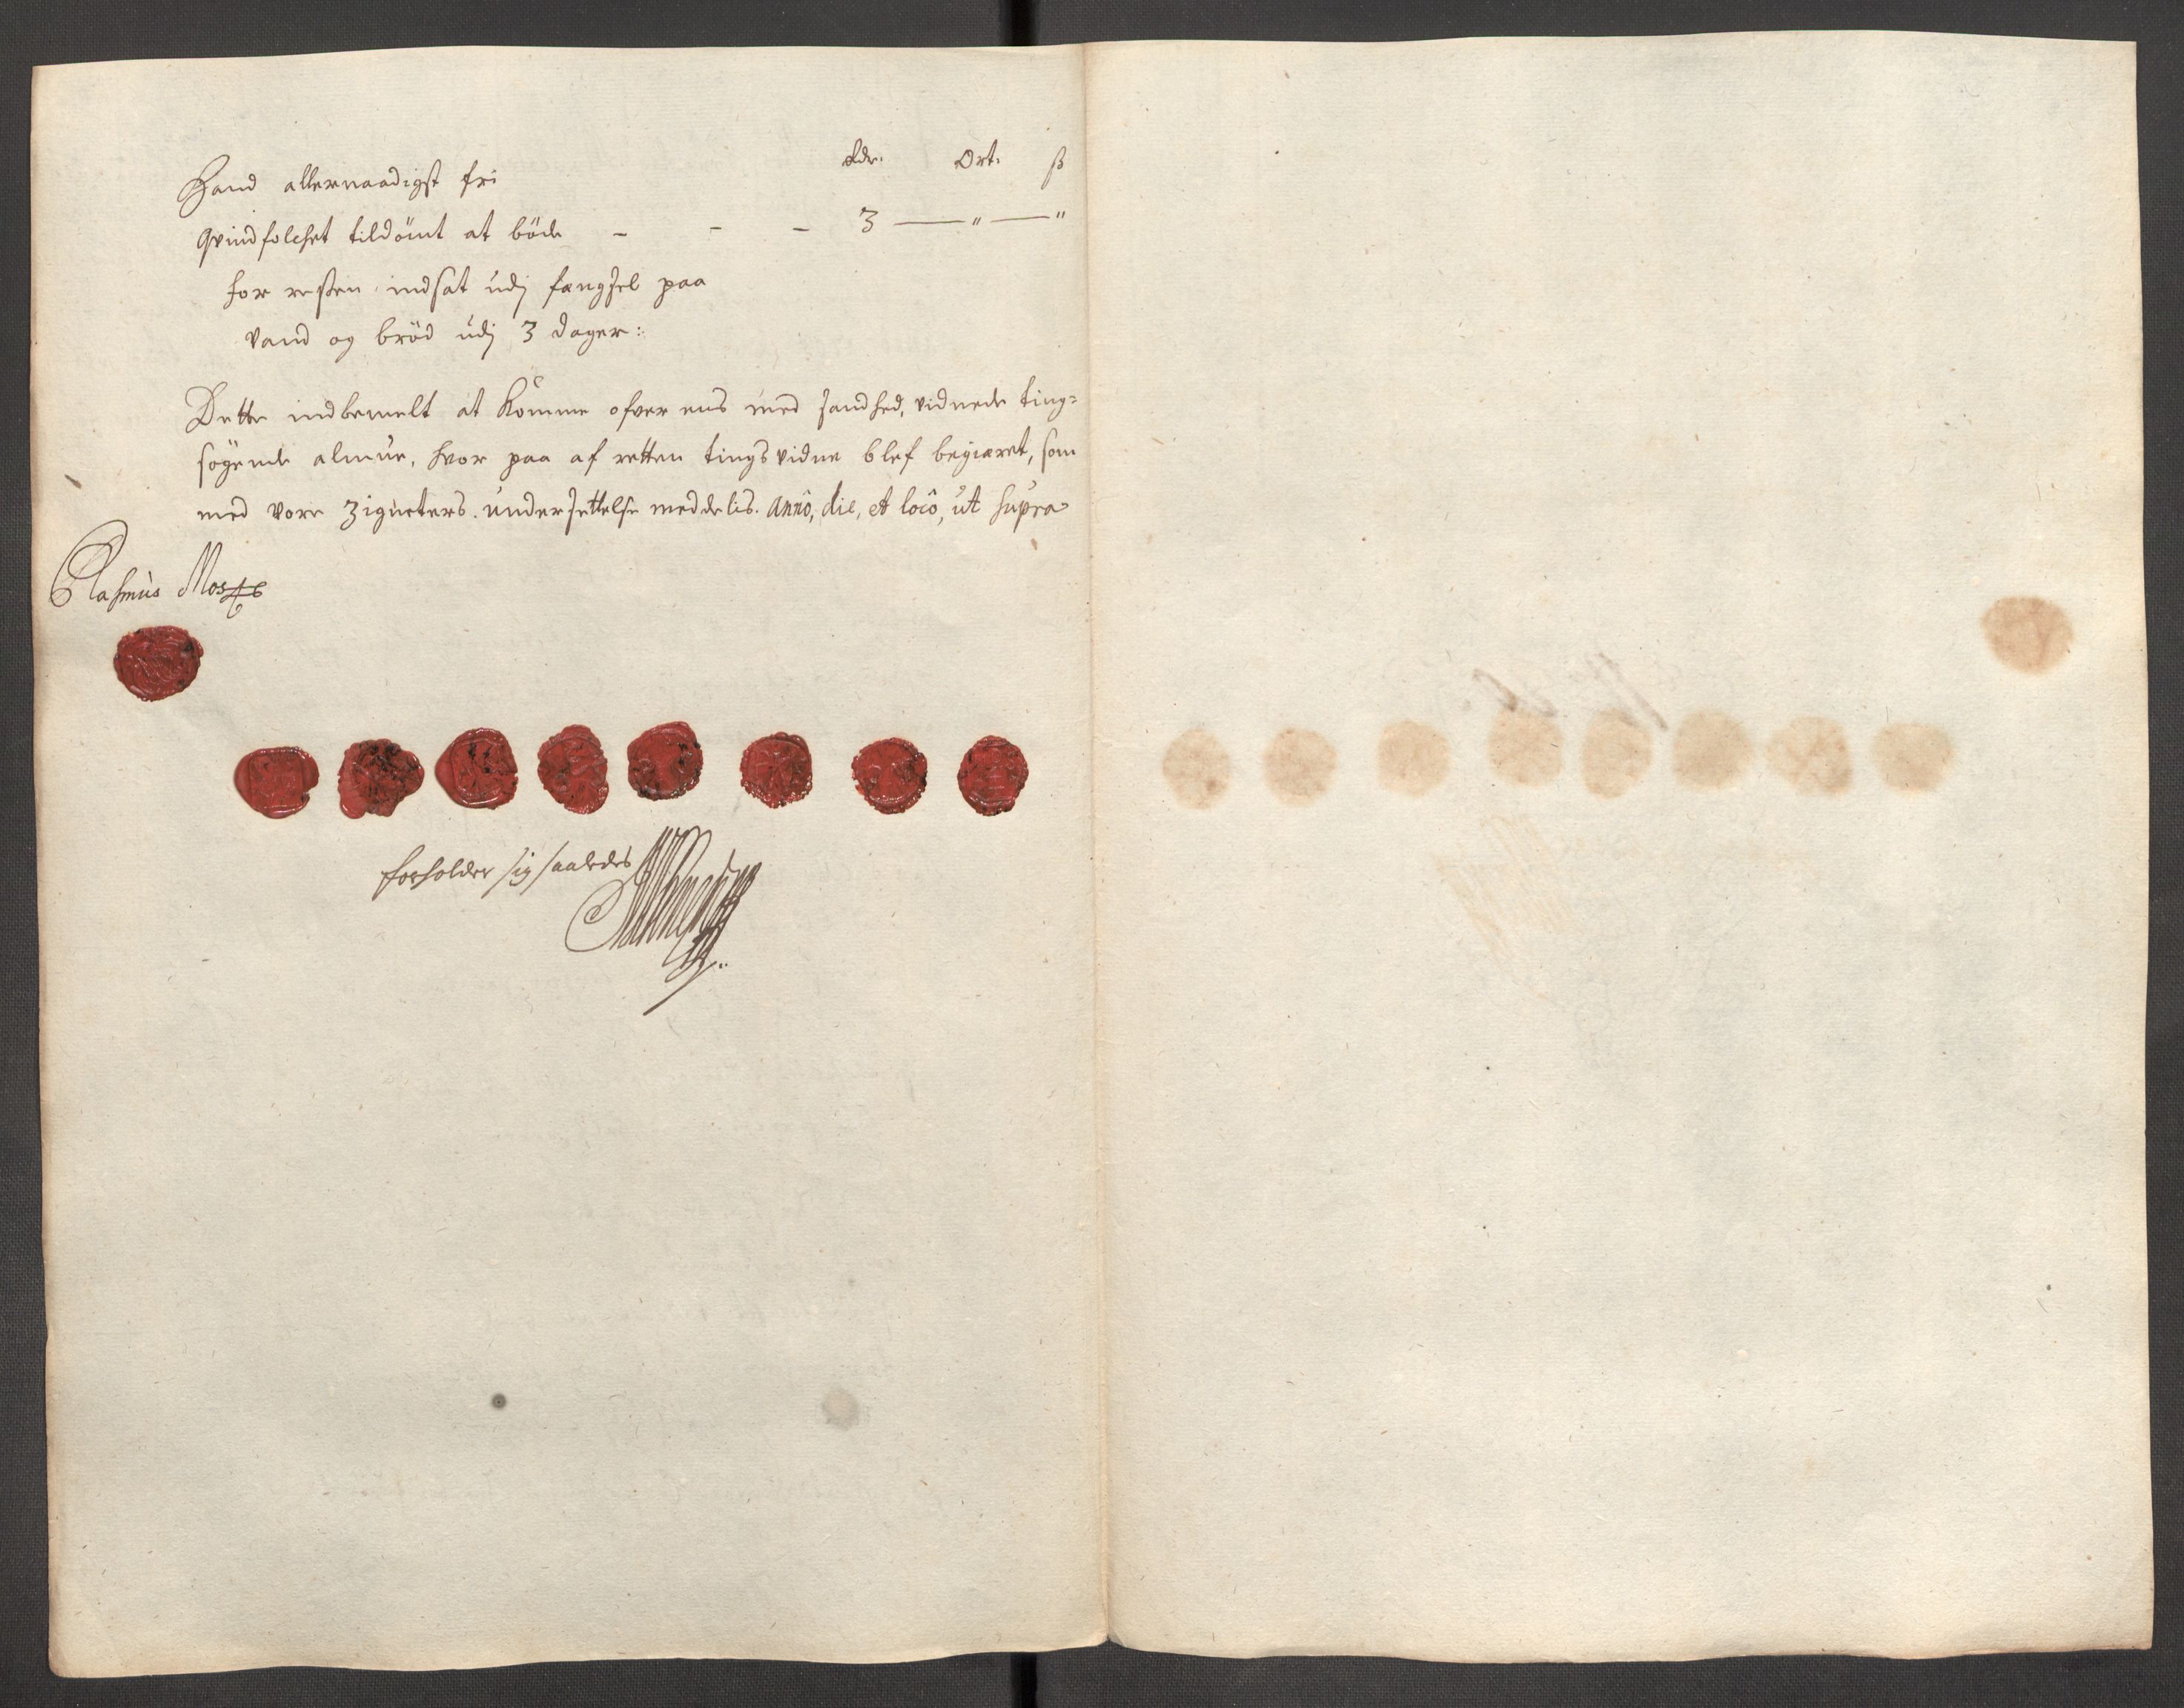 Rdr. Ort. ß
Hand allernaadigst fri
Qvindfolchet tildömt at böde - - - 3 — " — "
for resten indsat udj fængsel paa
vand og bröd udj 3 dager:
Dette indbemelt at komme ofver eens med sandhed, vidnede ting-
sögende almue, hvor paa af retten tingsvidne blef begiæret, som
med vore Zigneters undersettelse meddelis. Anno, die, et loco, ut supra
Rasmus
forholder sig saaledes